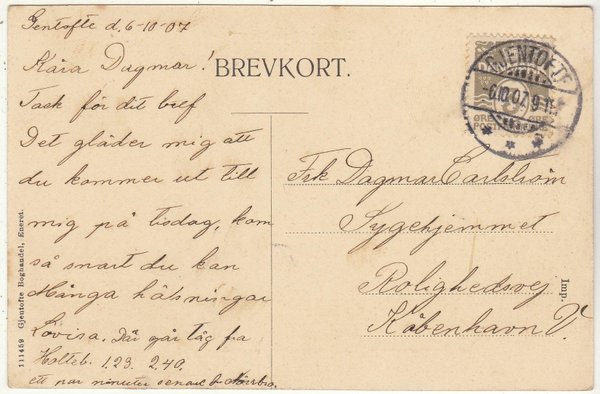 Gentofte d. 6-10-07
Kära Dagmar!
Tack för dit bref
Det gläder mig att
du kommer ut till
mig på tisdag, kom
så snart du kan
Många hälsningar
Lovisa. Där går tåg fra
Holteb. 1.23. 2.40.
ett par minuter senare
BREVKORT.
GJENTOFTE
6.10.07. 9
ØRE ØRE
POST
Frk Dagmar Carlström
Sygehjemmet
Rolighedsvej
København V.
Imp.
111459 Gjentofte Boghandel, Eneret.